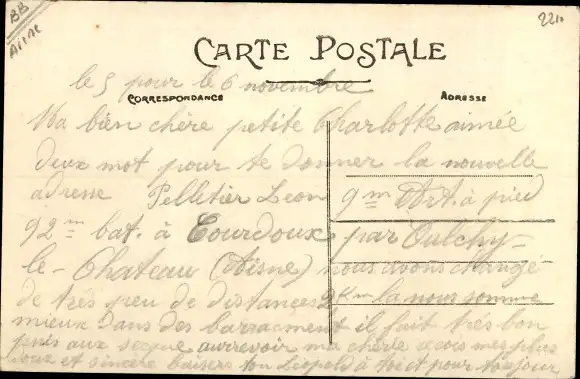 BB
2210
CARTE POSTALE
le 5 pour le 6 novembre
CORRESPONDANCE
ADRESSE
Ma bien chère petite Charlotte aimée
deux mot pour te donner la nouvelle
adresse Pelletier Leon 9m Art. à pied
92m bat. à Courdoux par Oulchy-
le-Chateau (Aisne) nous avons changé
de très peu de distances 2Km la nous somme
mieux dans des barracment il fait très bon
aux aurrevoir ma chérie mes plus
doux et sincère baisers ton Léopold à toi et pour toujour